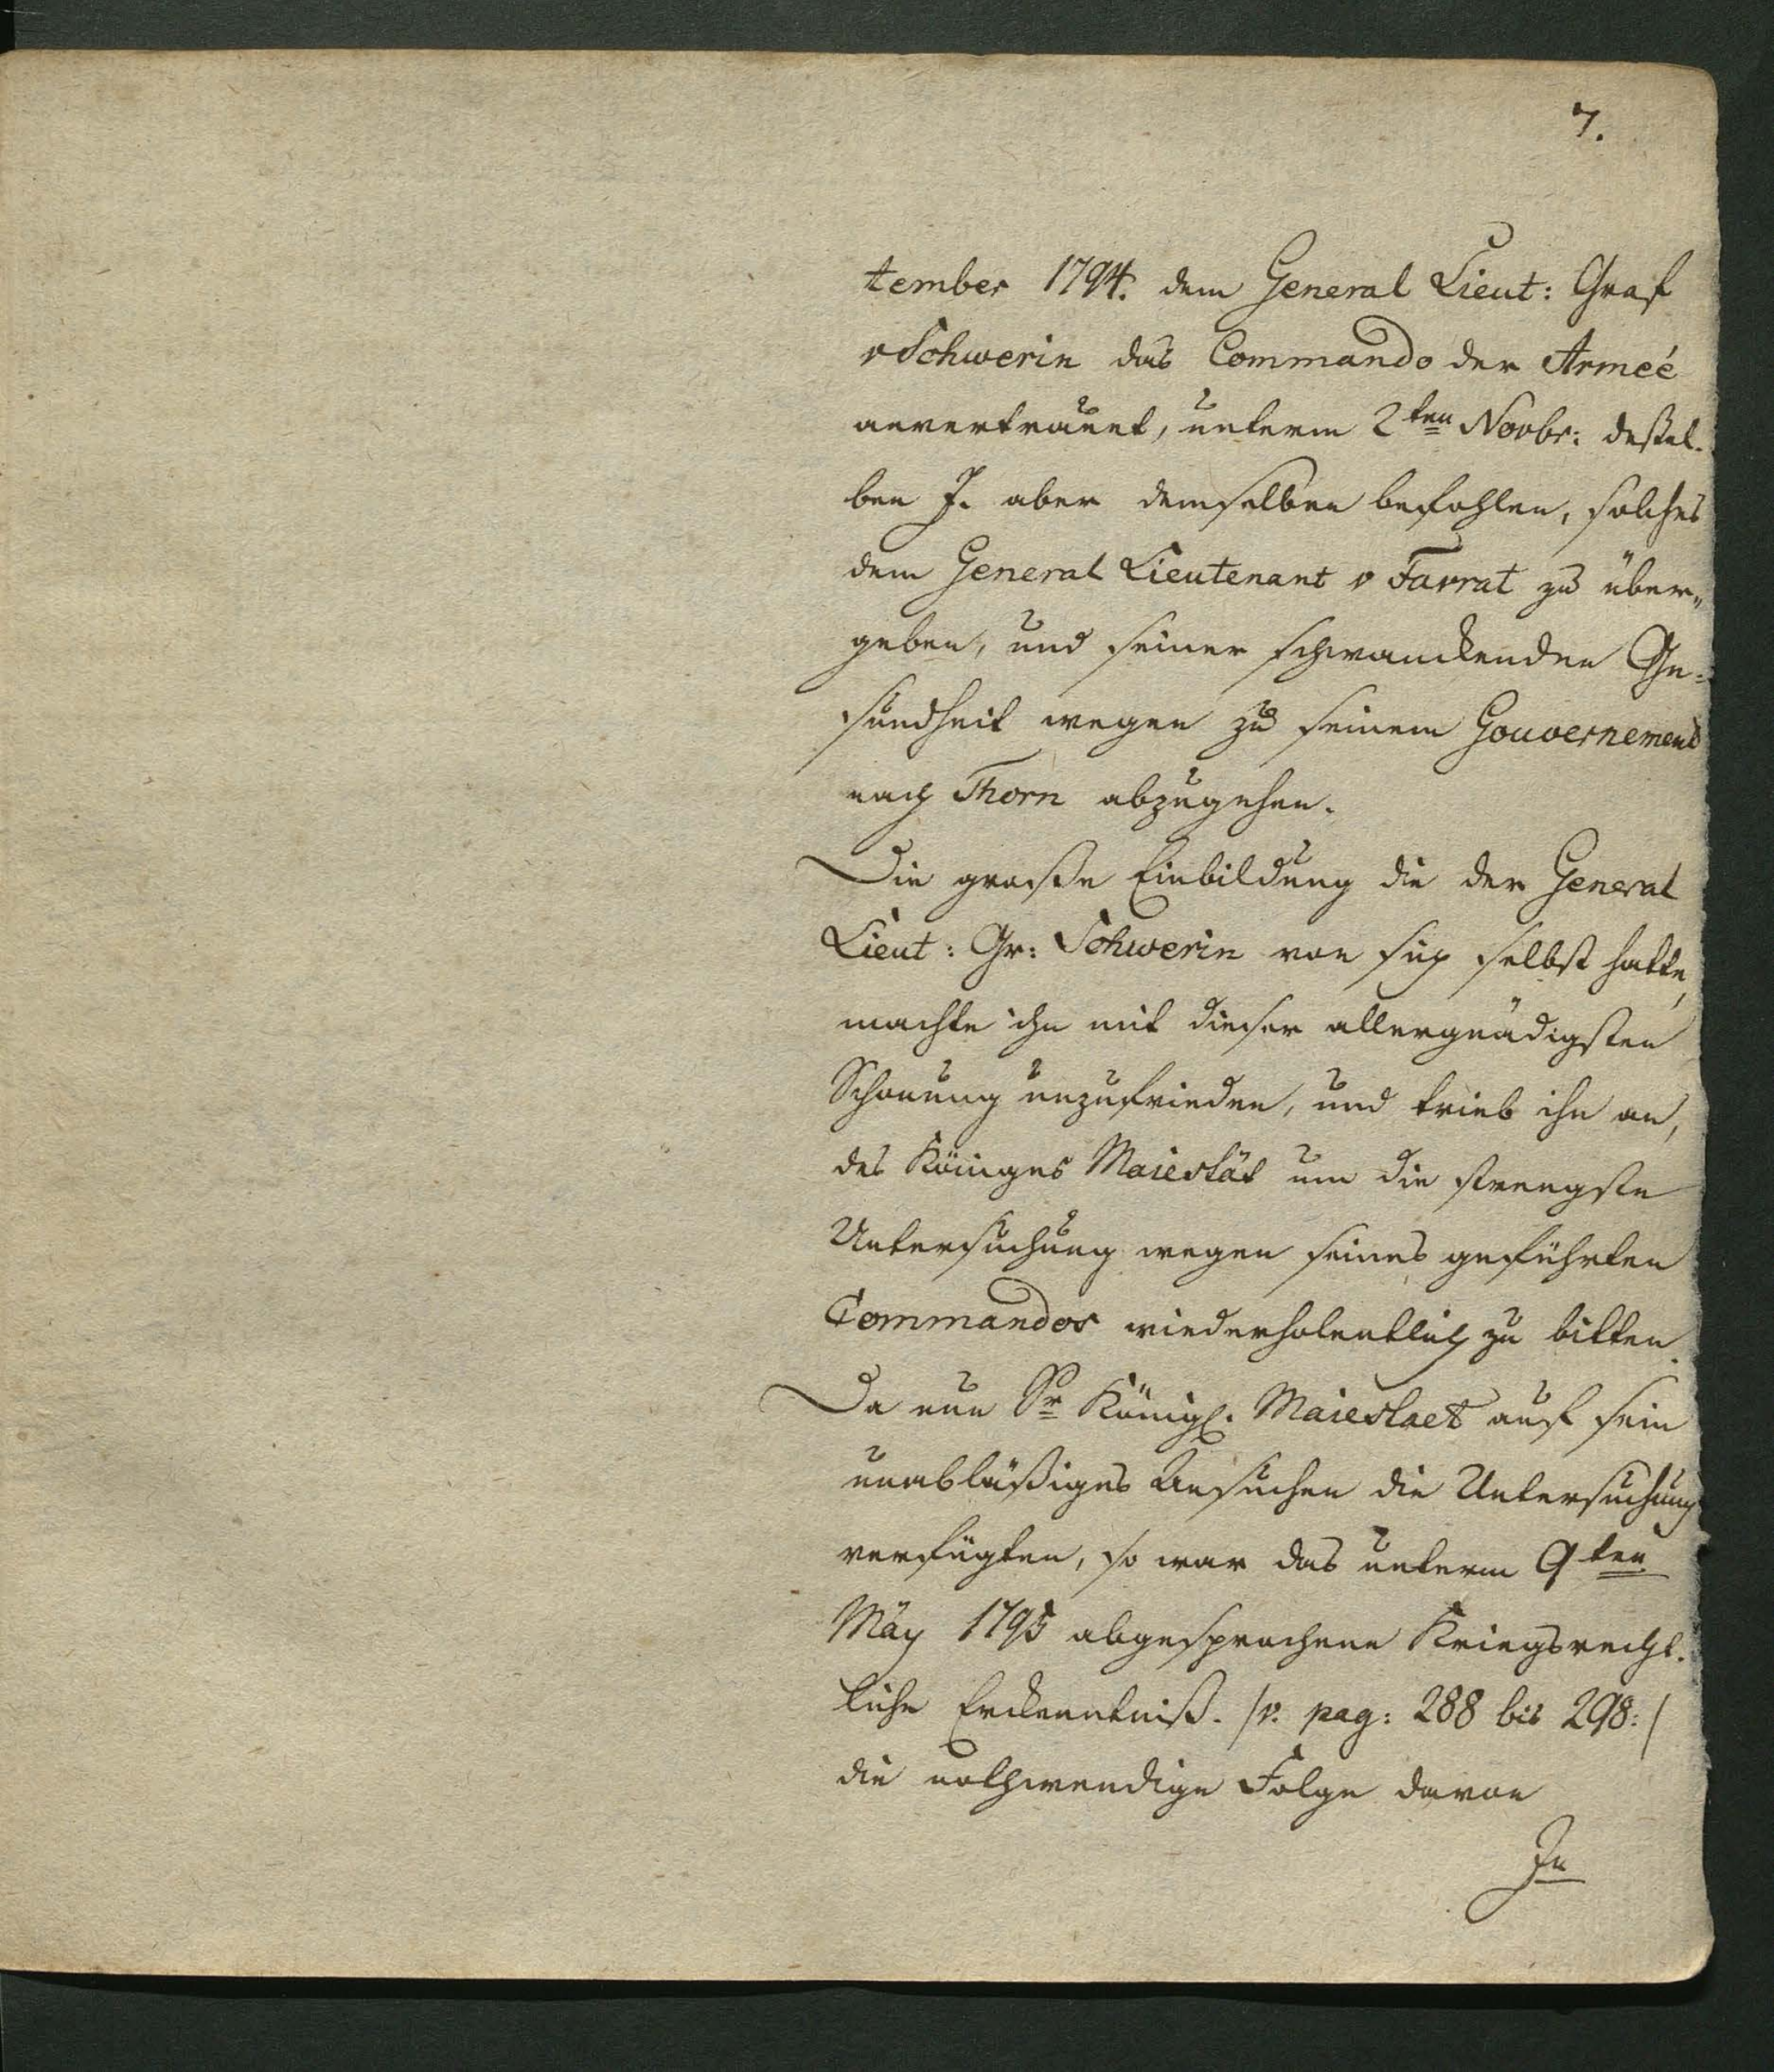 7.
tember 1794. dem General Lieut: Graf
v Schwerin das Commando der Armeé
anvertraut, unterm 2ten Novbr: deßel-
ben J. aber demselben befohlen, solches
dem General Lieutenant v Favrat zu über„
geben, und seiner schwanckenden Ge=
sundheit wegen zu seinem Gouvernement
nach Thorn abzugehen.
Die große Einbildung die der General
Lieut: Gr: Schwerin von sich selbst hatte,
machte ihn mit dieser allergnädigsten
Schonung unzufrieden, und trieb ihn an,
des Königes Maiestät um die strengste
Untersuchung wegen seines geführten
Commandos wiederholentlich zu bitten.
Da nun Sr Königl. Maiestaet auf sein
unabläßiges Ansuchen die Untersuchung
verfügten, so war das unterm 9ten
Mäy 1795 abgesprochene Kriegsrecht-
liche Erckenntniß. /v. pag: 288 bis 298:/
die nothwendige Folge davon
In